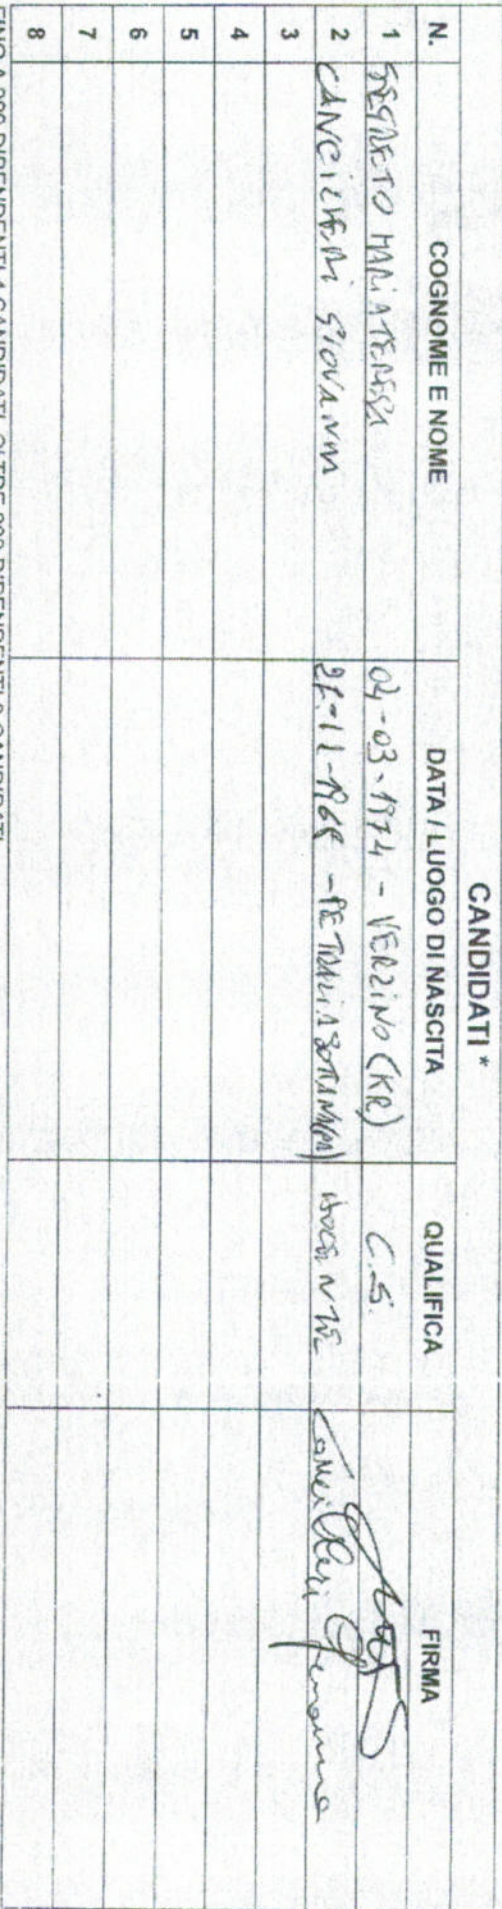 CANDIDATI *
N. COGNOME E NOME DATA / LUOGO DI NASCITA QUALIFICA FIRMA
1 SEGRETO MARIA TERESA 04-03-1974 - VERZINO (KR) C.S.
2 CANCILLERI GIOVANNI - PETRALIA SOTTANA (PA) DOCENTE Cancilleri Giovanni
3
4
5
6
7
8